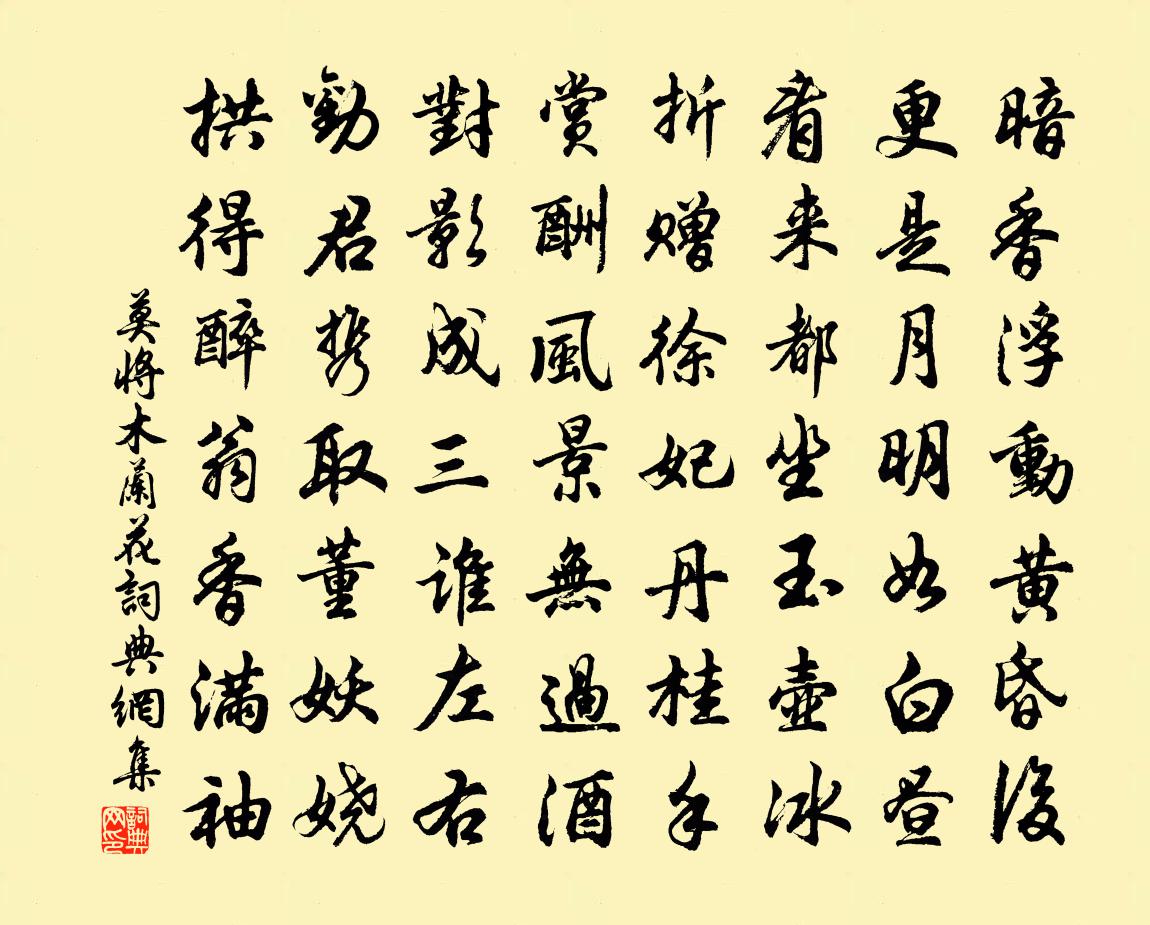 暗香浮動黄昏後
更是月明如白昼
看来都坐玉壺冰
折赠徐妃丹桂手
賞酬風景無過酒
對影成三谁左右
勸君携取董妖娆
拱得醉翁香满袖
莫將木蘭花詞典網集
詞典网印